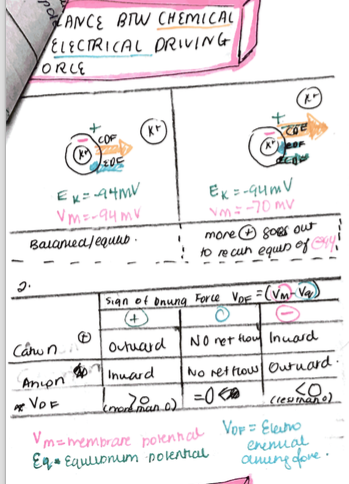 LANCE BTW CHEMICAL
ELECTRICAL DRIVING
ORCE
+
-
K+
CDF
EDF
K+
EK = -94mV
Vm = -94mV
Balanced/equilib.
K+
+
-
K+
CDF
EDF
EK = -94mV
Vm = -70mV
more + goes out
to reach equib of
2.
Sign of Driving Force VDF = (Vm - Veq)
+ 0 -
Cation + Outward NO net flow Inward
Anion Inward No net flow Outward.
* VDF >0 (more than 0) =0 <0 (less than 0)
Vm = membrane potential
Eq = Equilibrium potential
VDF = Electro
chemical
driving force.